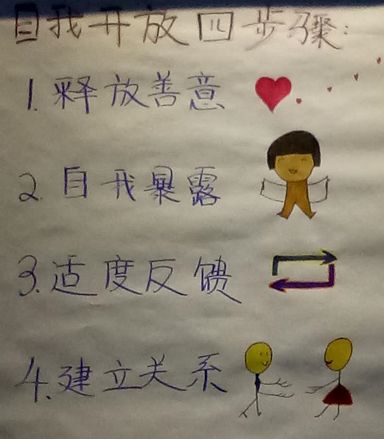 自我开放四步骤:
1.释放善意
2.自我暴露
3.适度反馈
4.建立关系